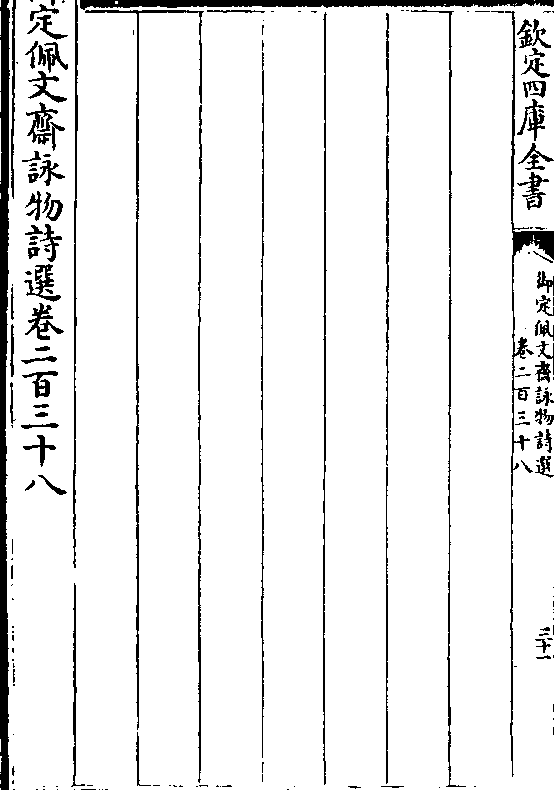 欽定四庫全書
御定佩文齋詠物詩選
卷二百三十八
三十一
定佩文齋詠物詩選卷二百三十八